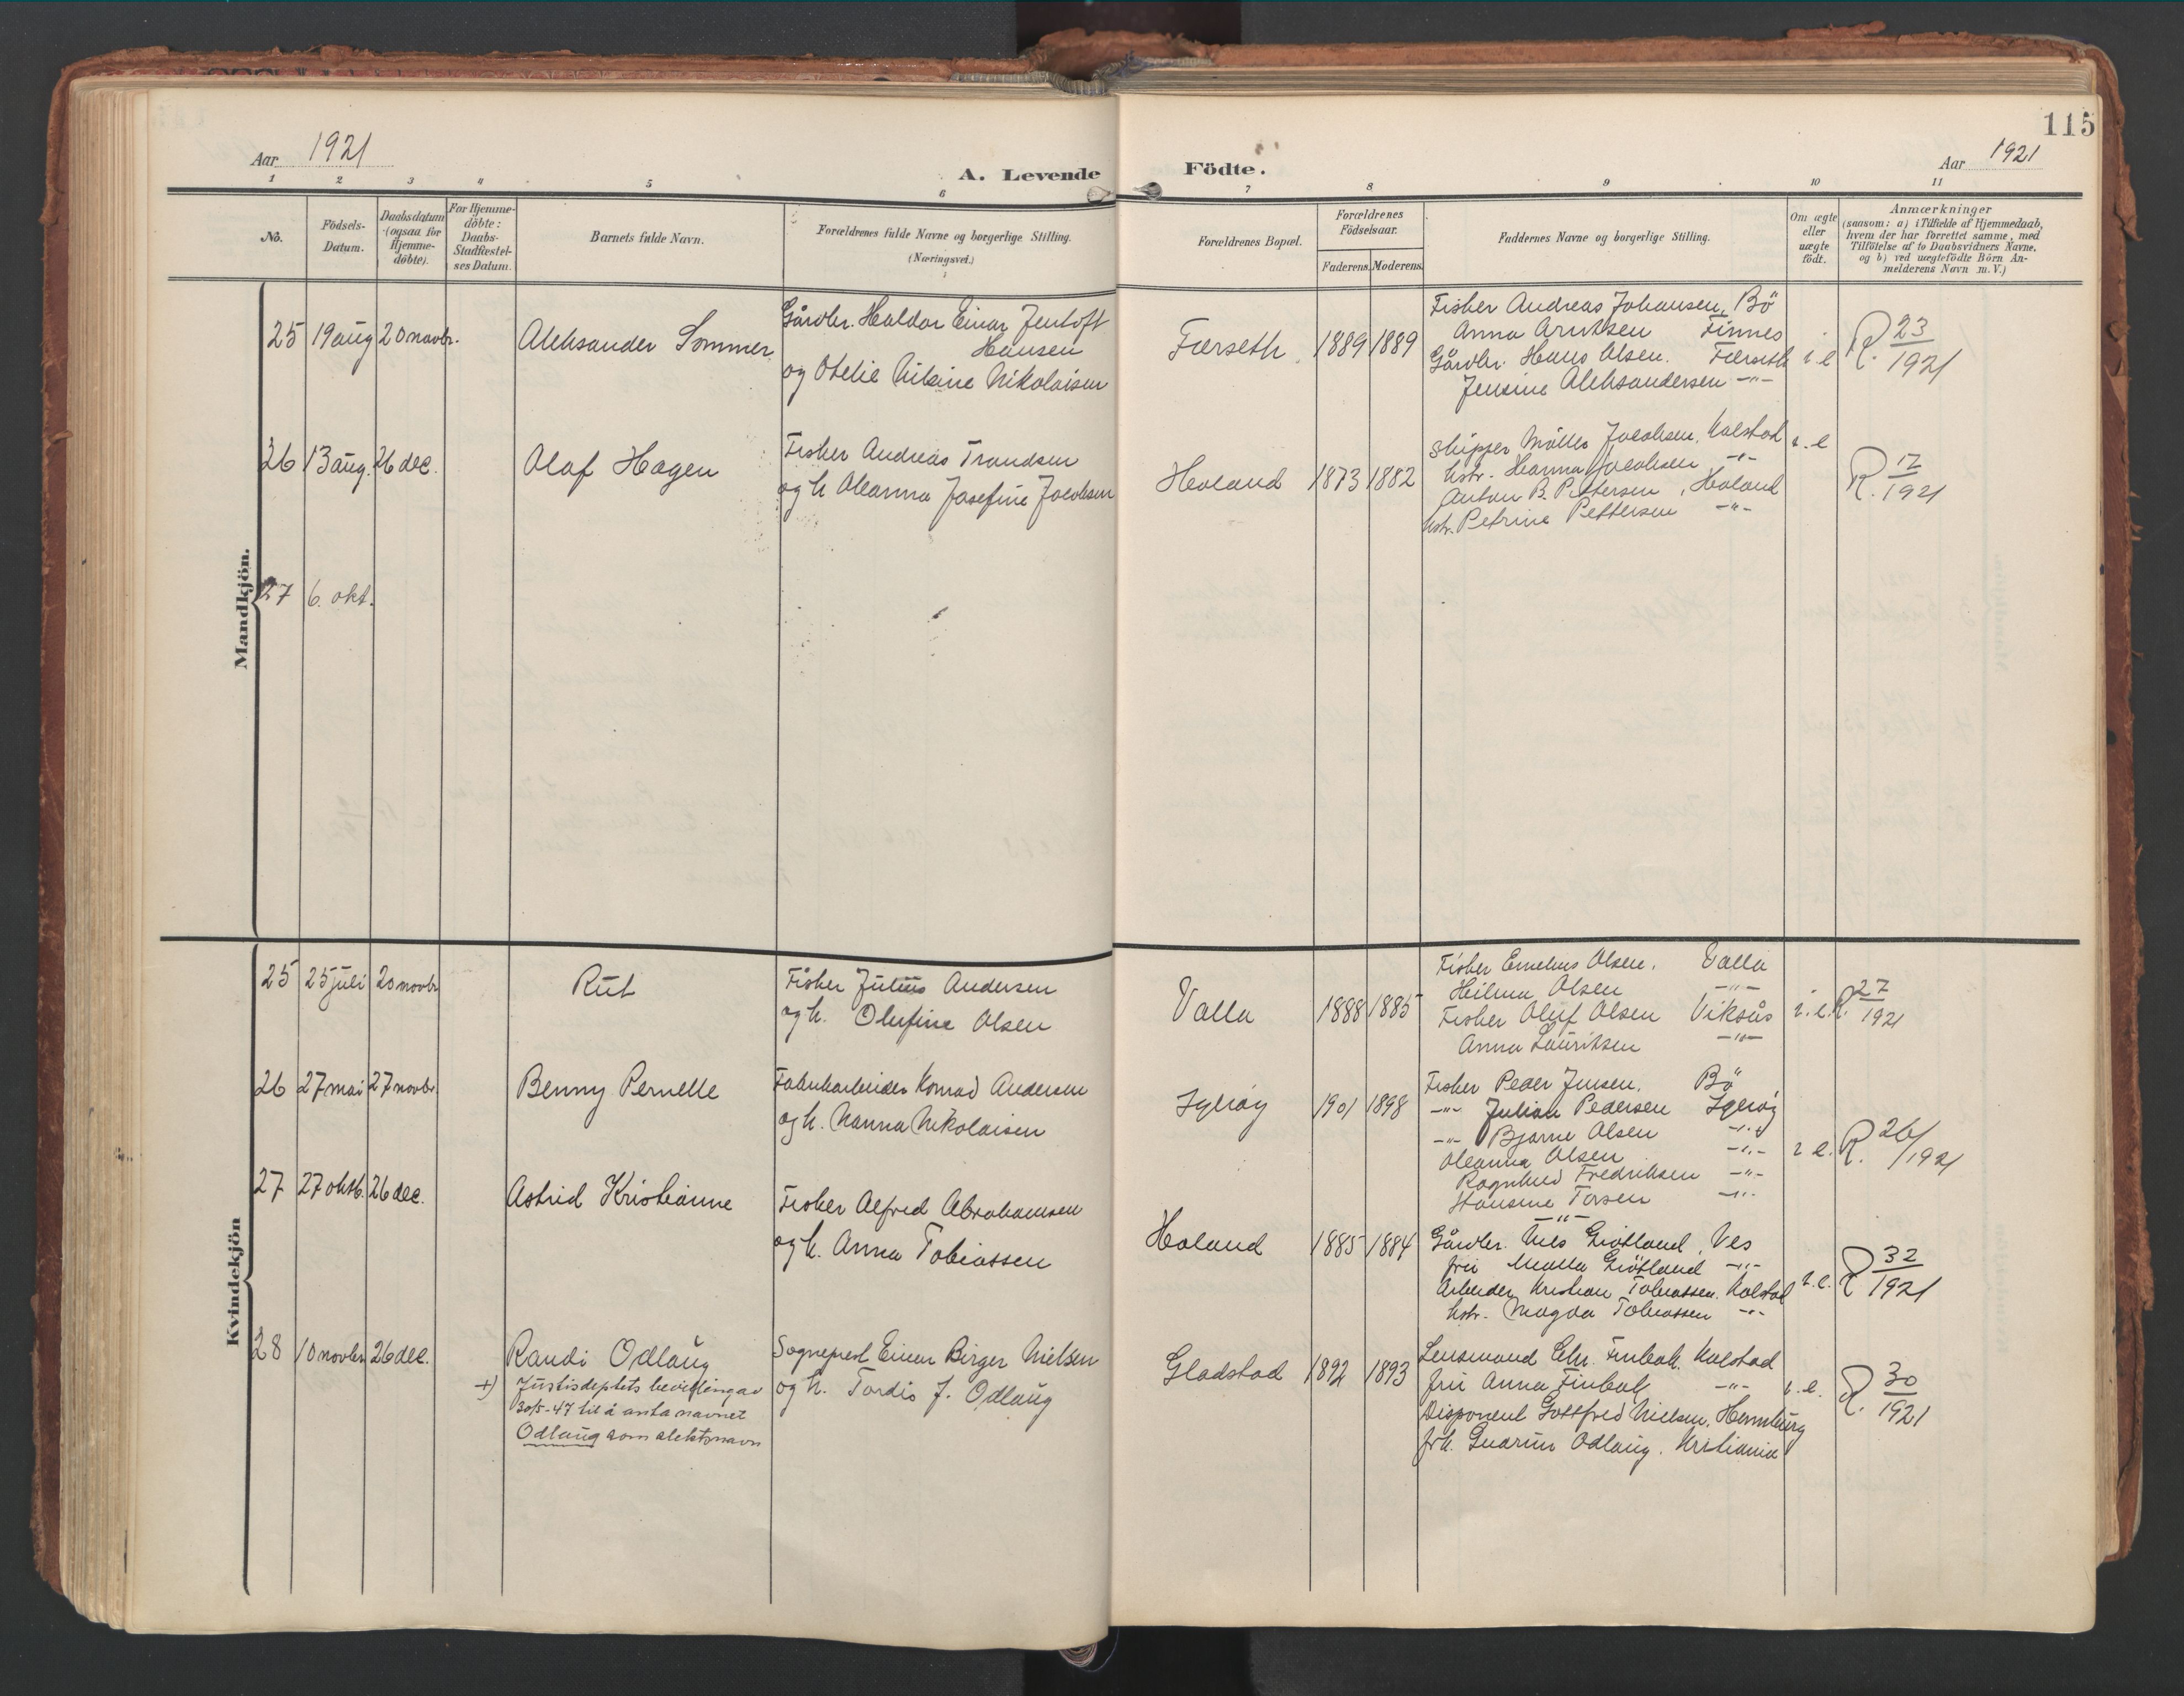 115
Aar 1921
A. Levende Födte.
Aar 1921
1 2 3 4 5 6 7 8 9 10 11
No.
Födsels-
Datum.
Daabsdatum
(ogsaa for
Hjemme-
döbte).
For Hjemme-
döbte:
Daabs-
Stadfæstel-
ses Datum.
Barnets fulde Navn.
Forældrenes fulde Navne og borgerlige Stilling.
(Næringsvei.)
Forældrenes Bopæl.
Forældrenes
Födselsaar.
Faderens. Moderens.
Faddernes Navne og borgerlige Stilling.
Om ægte
eller
uægte
födt.
Anmærkninger
(saasom: a) i Tilfælde af Hjemmedaab,
hvem der har forrettet samme, med
Tilföielse af to Daabsvidners Navne,
og b) ved uægtefödte Börn An-
melderens Navn m. V.)
Mandkjön.
25 19 aug 20 novbr.
Aleksander Sommer
Gårdbr. Haldor Einar Jentoft
Hansen
og Otelie Nilsine Nikolaisen
Færseth 1889 1889
Fisker Andreas Johansen, Bö
Anna Arntsen Finnes
Gårdbr. Hans Olsen. Færseth
Jensine Aleksandersen -"-
i e
R. 23/1921
26 13 aug. 26 dec.
Olaf Hagen
Fisker Andreas Trondsen
og h Oleanna Josefine Jacobsen
Havland 1873 1882
Skipper Möller Jacobsen, Kolstad
hstr. Hanna Jacobsen -"-
Anton B. Pettersen, Haland
hstr. Petrine Pettersen -"-
i. e
R. 17/1921
27 6. okt.
Kvindekjön
25 25 juli 20 novbr
Rut
Fisker Julius Andersen
og h. Olufine Olsen
Valla 1888 1885
Fisker Olsen, Valla
Hilma Olsen -"-
Fisker Oluf Olsen Viksås
Anna Lauritsen -"-
i. e.
R. 27/1921
26 27 mai 27 novbr.
Benny Pernelle
Fabrikarbeider Konrad Andersen
og h. Nanna Nikolaisen
Igeröy 1901 1898
Fisker Peder Jensen, Bö
-"- Julian Pedersen Igeröy
-"- Bjarne Olsen -"-
Oleanna Olsen -"-
Ragnhild Fredriksen -"-
Hansine Torsen -"-
-"-
i e.
R. 26/1921
27 27 oktb. 26 dec.
Astrid Kristianne
Fisker Alfred Abrahamsen
og h. Anna Tobiassen
Haland 1885 1884
Gårdbr. Nils Grötland, Ves
fru Malla Grötland -"-
Arbeider Kristian Tobiassen. Kolstad
hstr. Magda Tobiassen -"-
i. e.
R 32/1921
28 10 novbr 26 dec.
Randi Odlaug
+) Justisdeptets bevilling av
30/5-47 til å anta navnet
Odlaug som slektsnavn
Sogneprest Einar Birger Nielsen
og h. Tordis J. Odlaug
Gladstad 1892 1893
Lensmand Chr. Finbak. Kolstad
fru Anna Finbak -"-
Disponent Gottfred Nielsen, Hamburg
frk. Gudrun Odlaug. Kristiania
i. e.
R. 30/1921